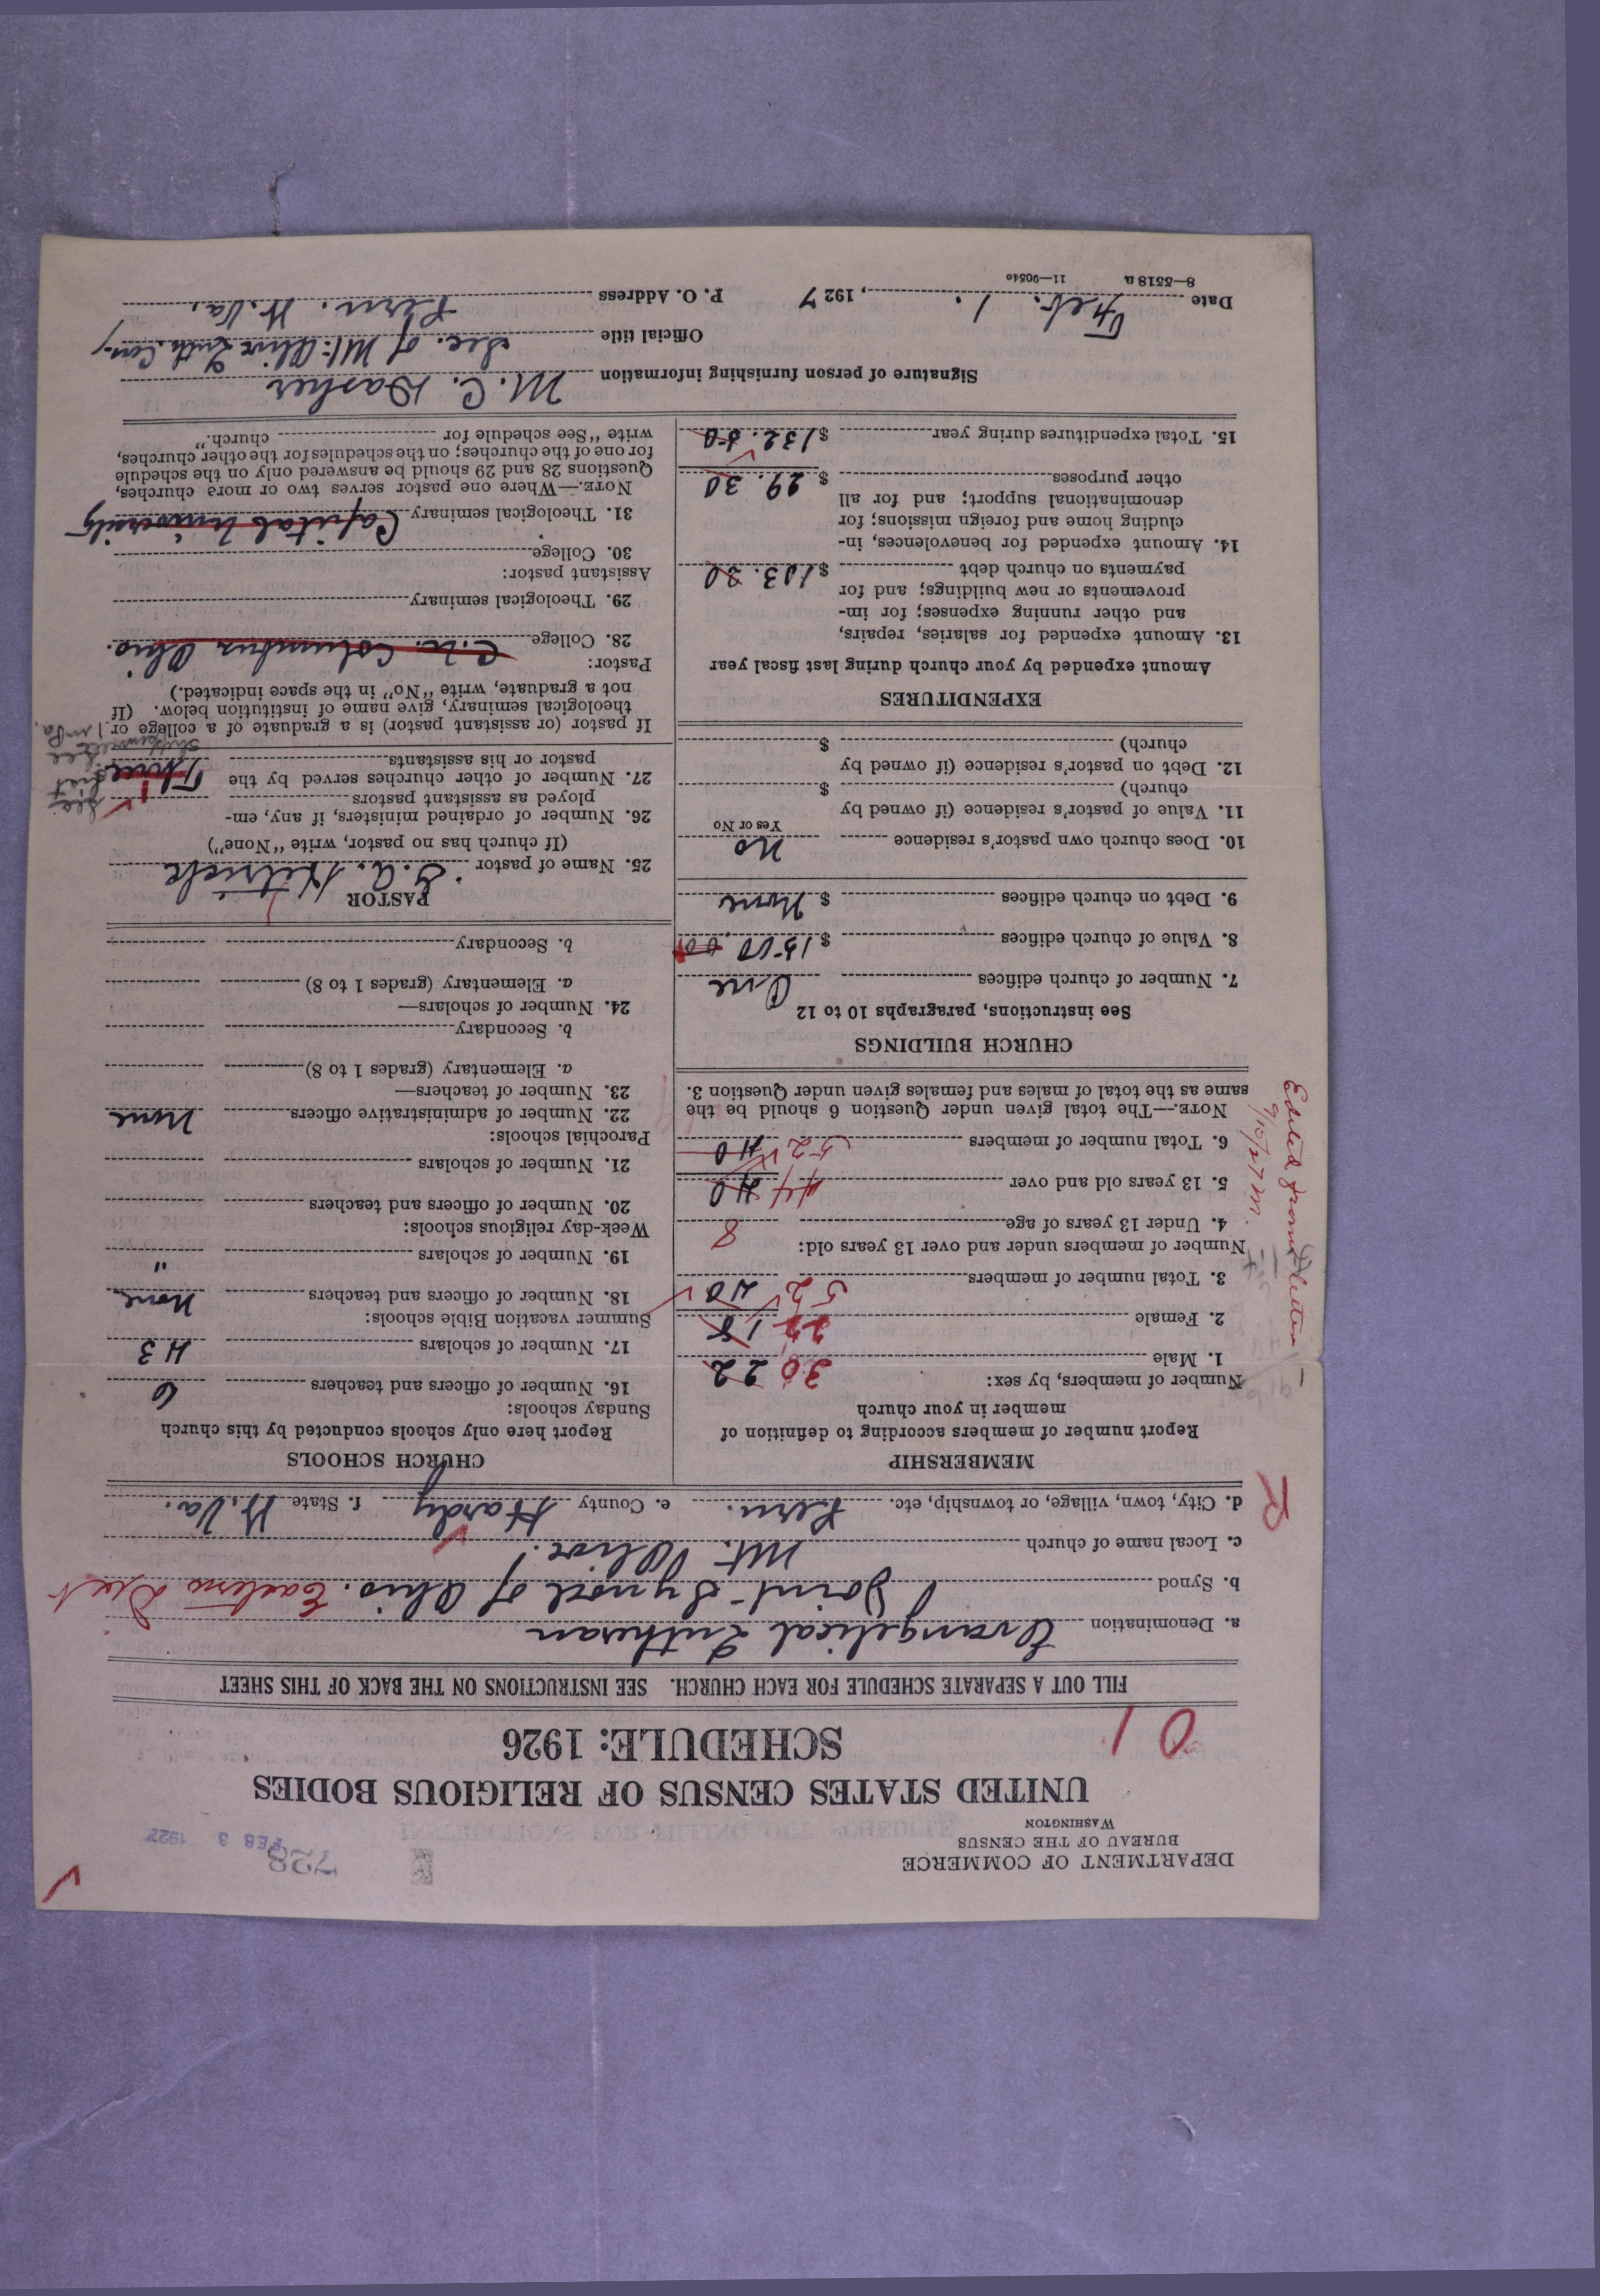 DEPARTMENT OF COMMERCE
BUREAU OF THE CENSUS
WASHINGTON
728
FEB 3 1927
UNITED STATES CENSUS OF RELIGIOUS BODIES
SCHEDULE: 1926
01
FILL OUT A SEPARATE SCHEDULE FOR EACH CHURCH. SEE INSTRUCTIONS ON THE BACK OF THIS SHEET
a. Denomination Evangelical Lutheran
b. Synod Joint Synod of Ohio. Eastern Dist
c. Local name of church Mt. Olive.
d. City, town, village, or township, etc. Peru. e. County Hardy f. State W. Va.
R
MEMBERSHIP
Report number of members according to definition of
member in your church
Number of members, by sex:
1. Male 30 22
2. Female 22 18
3. Total number of members 52 40
Number of members under and over 13 years old:
4. Under 13 years of age 8
5. 13 years old and over 44 40
6. Total number of members 52 40
NOTE.—The total given under Question 6 should be the
same as the total of males and females given under Question 3.
Edited from letter
9/15/27 M.
CHURCH BUILDINGS
See instructions, paragraphs 10 to 12
7. Number of church edifices One
8. Value of church edifices $ 1500.00
9. Debt on church edifices $ None
10. Does church own pastor's residence No
Yes or No
11. Value of pastor's residence (if owned by
church) $
12. Debt on pastor's residence (if owned by
church) $
EXPENDITURES
Amount expended by your church during last fiscal year
13. Amount expended for salaries, repairs,
and other running expenses; for im-
provements or new buildings; and for
payments on church debt $ 103.20
14. Amount expended for benevolences, in-
cluding home and foreign missions; for
denominational support; and for all
other purposes $ 29.30
15. Total expenditures during year $ 132.50
CHURCH SCHOOLS
Report here only schools conducted by this church
Sunday schools:
16. Number of officers and teachers 6
17. Number of scholars 43
Summer vacation Bible schools:
18. Number of officers and teachers None
19. Number of scholars "
Week-day religious schools:
20. Number of officers and teachers
21. Number of scholars
Parochial schools:
22. Number of administrative officers None
23. Number of teachers—
a. Elementary (grades 1 to 8)
b. Secondary
24. Number of scholars—
a. Elementary (grades 1 to 8)
b. Secondary
PASTOR
25. Name of pastor G. A. Hetrick
(If church has no pastor, write "None")
26. Number of ordained ministers, if any, em-
ployed as assistant pastors
27. Number of other churches served by the
pastor or his assistants Three
If pastor (or assistant pastor) is a graduate of a college or
theological seminary, give name of institution below. (If
not a graduate, write "No" in the space indicated.)
Pastor:
28. College C. U. Columbus Ohio.
29. Theological seminary
Assistant pastor:
30. College
31. Theological seminary Capital University
NOTE.—Where one pastor serves two or more churches,
Questions 28 and 29 should be answered only on the schedule
for one of the churches; on the schedules for the other churches,
write "See schedule for church."
Signature of person furnishing information M. C. Dasher
Official title Sec. of Mt. Olive Luth. Con.
Date Feb. 1., 1927 P. O. Address Peru. W. Va.
8—5518 a 11—9051c